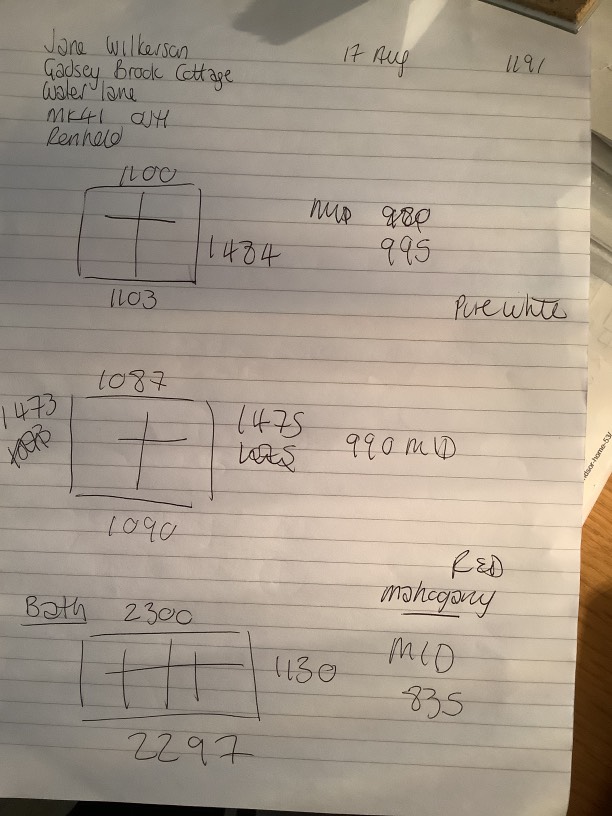 Jane Wilkerson
17 Aug
1191
Gadsey Brook Cottage
Water lane
MK41
Renhold
1100
MID 980
1484
995
1103
Pure White
1087
1473
1475
990 MID
1090
RED
mahogany
Bath 2300
1130
MID
835
2297